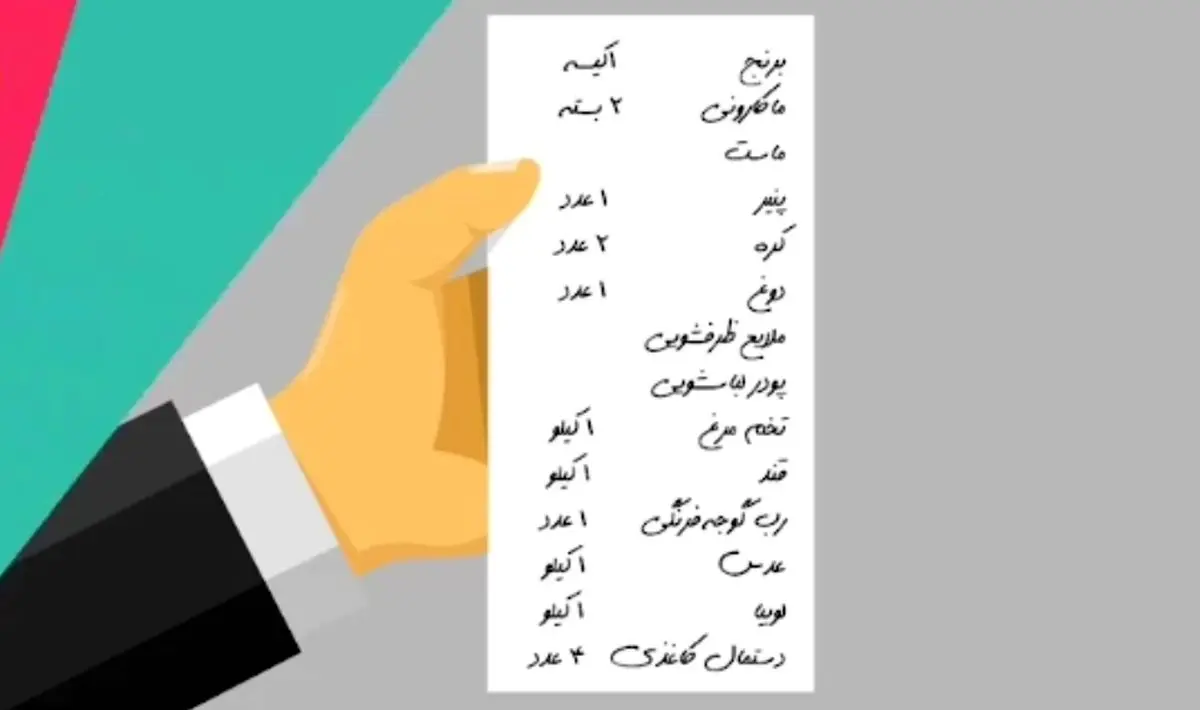 برنج ۱ کیسه
ماکارونی ۲ بسته
ماست
پنیر ۱ عدد
کره ۲ عدد
دوغ ۱ عدد
ملایع ظرفشویی
پودر لباسشویی
تخم مرغ ۱ کیلو
قند ۱ کیلو
رب گوجه فرنگی ۱ عدد
عدس ۱ کیلو
لوبیا ۱ کیلو
دستمال کاغذی ۴ عدد